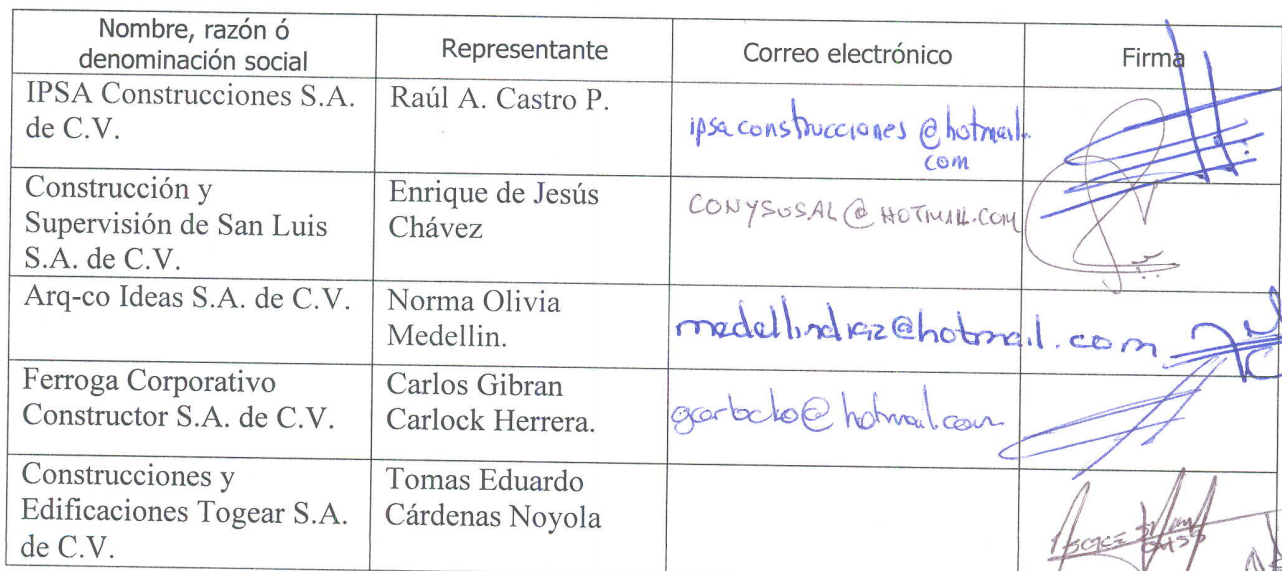 Nombre, razón ó
denominación social
Representante
Correo electrónico
Firma
IPSA Construcciones S.A.
de C.V.
Raúl A. Castro P.
ipsaconstrucciones@hotmail.
com
Construcción y
Supervisión de San Luis
S.A. de C.V.
Enrique de Jesús
Chávez
CONYSUSAL@HOTMAIL.COM
Arq-co Ideas S.A. de C.V.
Norma Olivia
Medellin.
medellindiaz@hotmail.com
Ferroga Corporativo
Constructor S.A. de C.V.
Carlos Gibran
Carlock Herrera.
Construcciones y
Edificaciones Togear S.A.
de C.V.
Tomas Eduardo
Cárdenas Noyola